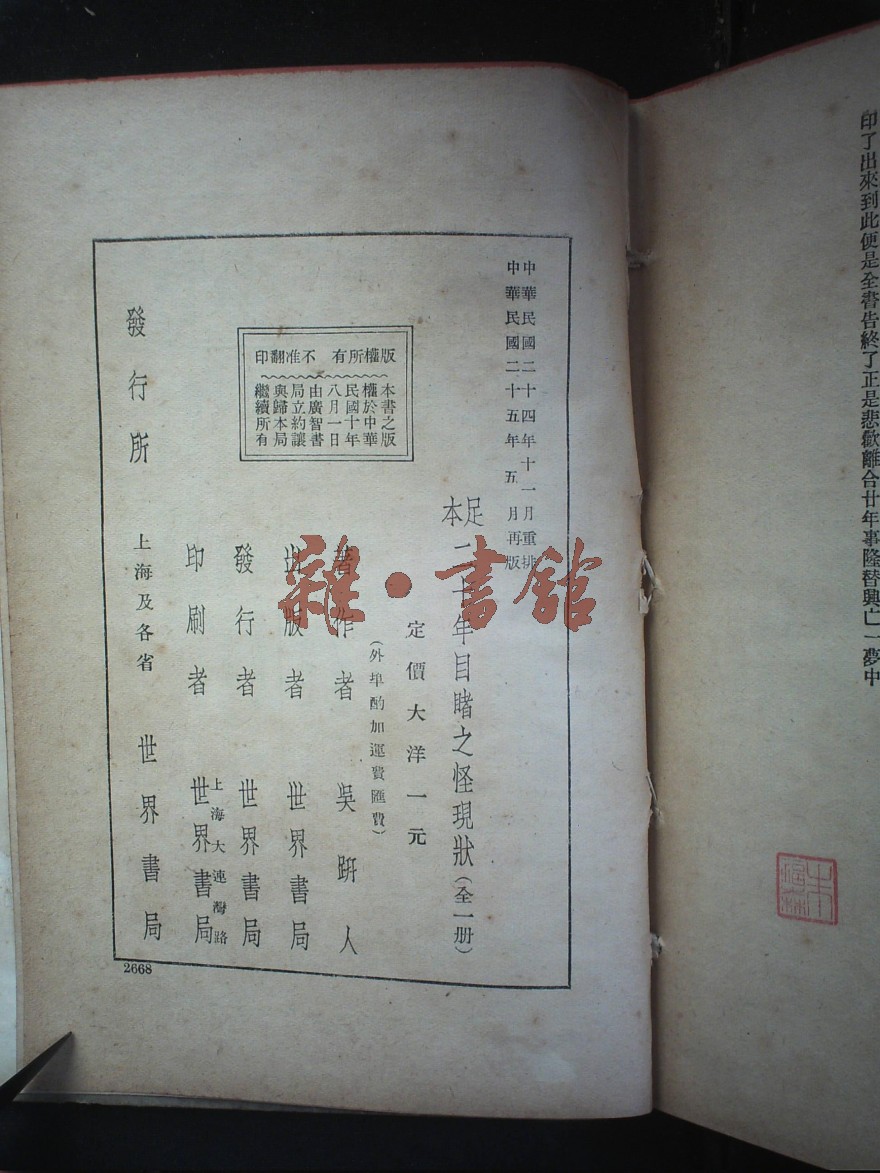 印了出來到此便是全書告終了正是悲歡離合廿年事隆替興亡一夢中
中華民國二十四年十一月重排
中華民國二十五年五月再版
足本
二十年目睹之怪現狀(全一册)
定價大洋一元
(外埠酌加運費匯費)
著作者 吳趼人
出版者 世界書局
發行者 世界書局
上海大連灣路
印刷者 世界書局
發行所 上海及各省 世界書局
版權所有 不准翻印
本書之版
權於中華
民國十年
八月一日
由廣智書
局立約讓
與歸本局
繼續所有
2668
雜·書館